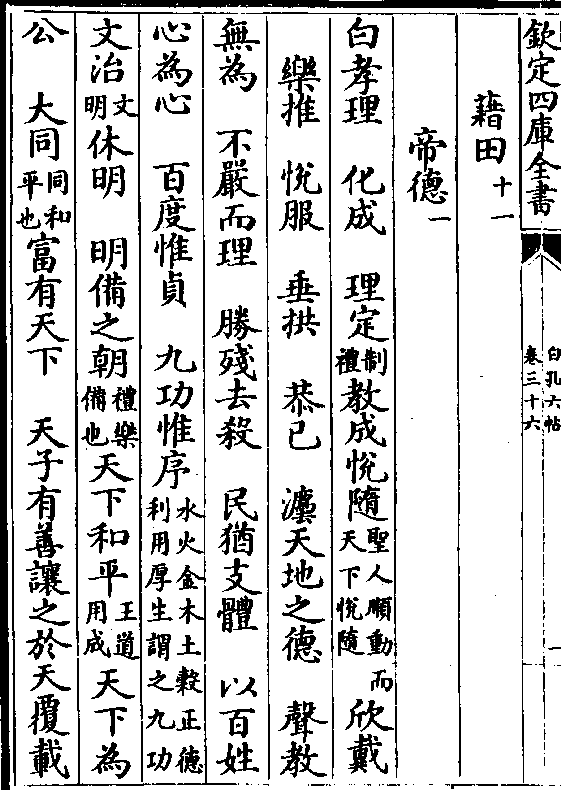 欽定四庫全書
白孔六帖
卷三十六
一
藉田十一
帝德一
白孝理 化成 理定制禮教成悅隨聖人順動而天下悅隨欣戴
樂推 悅服 垂拱 恭已 灋天地之德 聲教
無為 不嚴而理 勝殘去殺 民猶支體 以百姓
心為心 百度惟貞 九功惟序水火金木土穀正德利用厚生謂之九功
文治文明休明 明備之朝禮樂備也天下和平王道用成天下為
公 大同同和平也富有天下 天子有善讓之於天覆載